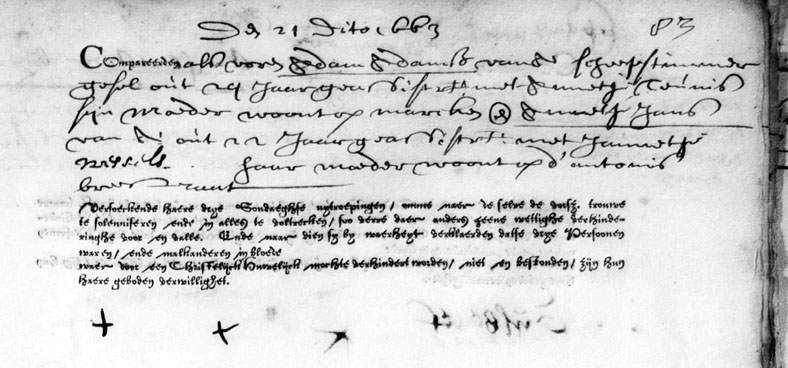 Den 21 Dito 1663
83
Compareerden als vooren Adam Adamsz van de scheepstimmer
gesel out 24 Jaar geass: met Annetje Teunis
sijn moeder woont op marcken & Annetje Jans
van A: out 22 Jaar geass: met Jannetje
Wessels haar moeder woont op d'antonis
breestraat
Versoeckende haere drye Sondaeghse uytroepingen / omme naer de selve de voorsz. trouwe
te solenniseren ende in alles te voltrecken / soo verre daer anders geene wettighe verhinde-
ringhe voor en valle. Ende naar dien sy by waerheyt verklaerden datse vrye Persoonen
waren / ende malkanderen in bloede
waer door een Christelijck Huwelijck mochte verhindert worden / niet en bestonden / zijn hun
haere geboden verwillighet.